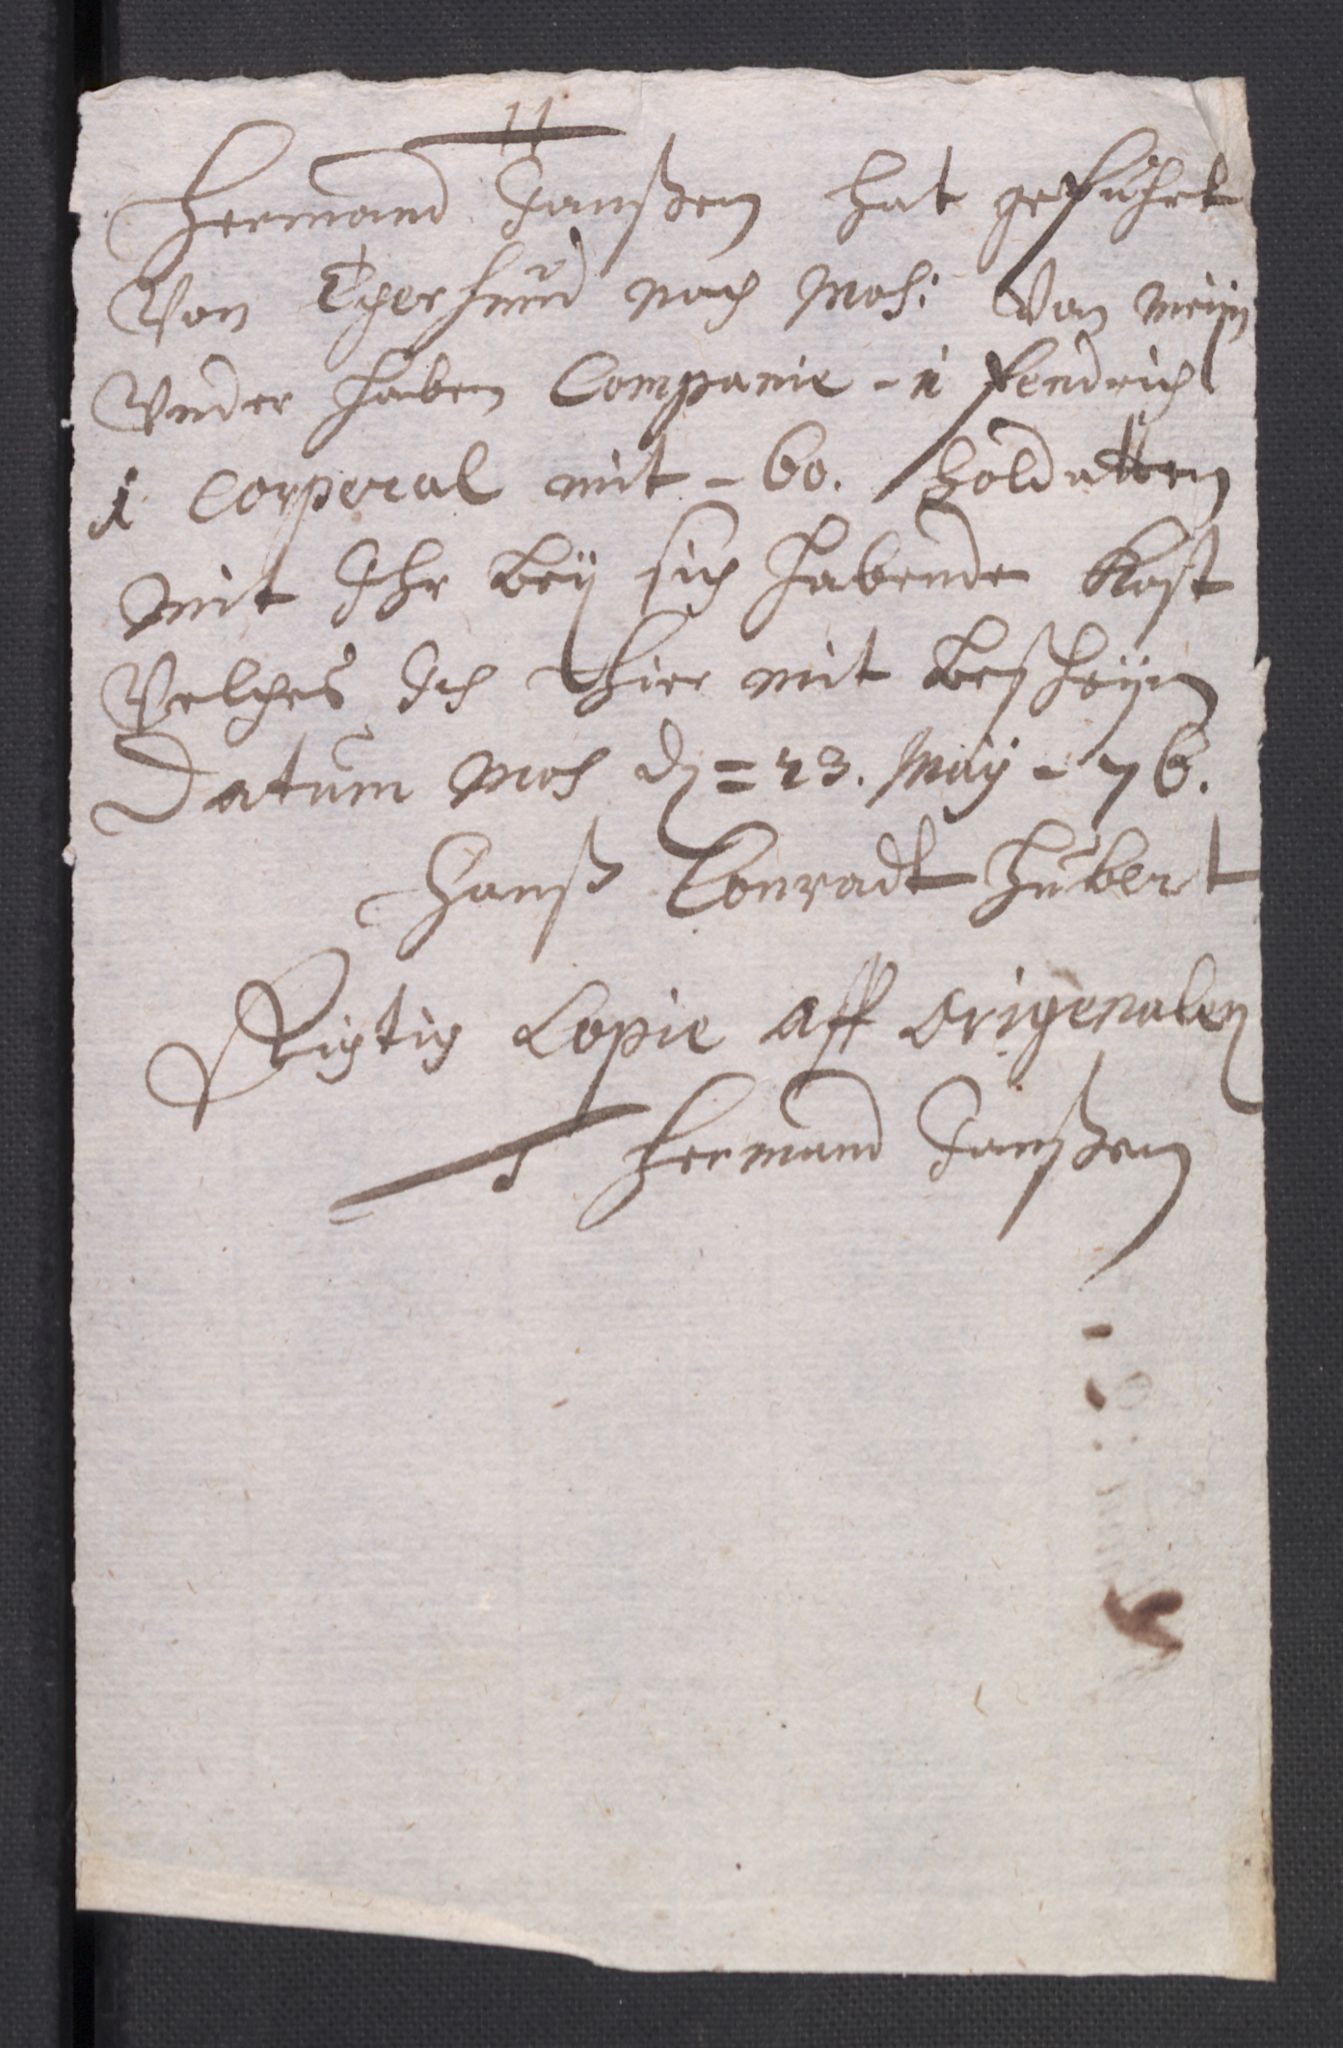 11
Hermand Janßen hat geführt
Von Egersund nach Mos: Von meijn
Vnder haben Companie - 1 fendrich
1 Corperal mit - 60. Soldatten
mit Ihr beÿ sich habende Kost
Velches Ich Hier mit besheijn
Datum Mos d = 23. Maÿ - 76.
Hanß Conradt Hübert
Rigtig Copie aff origenalen
Hermand Janßen